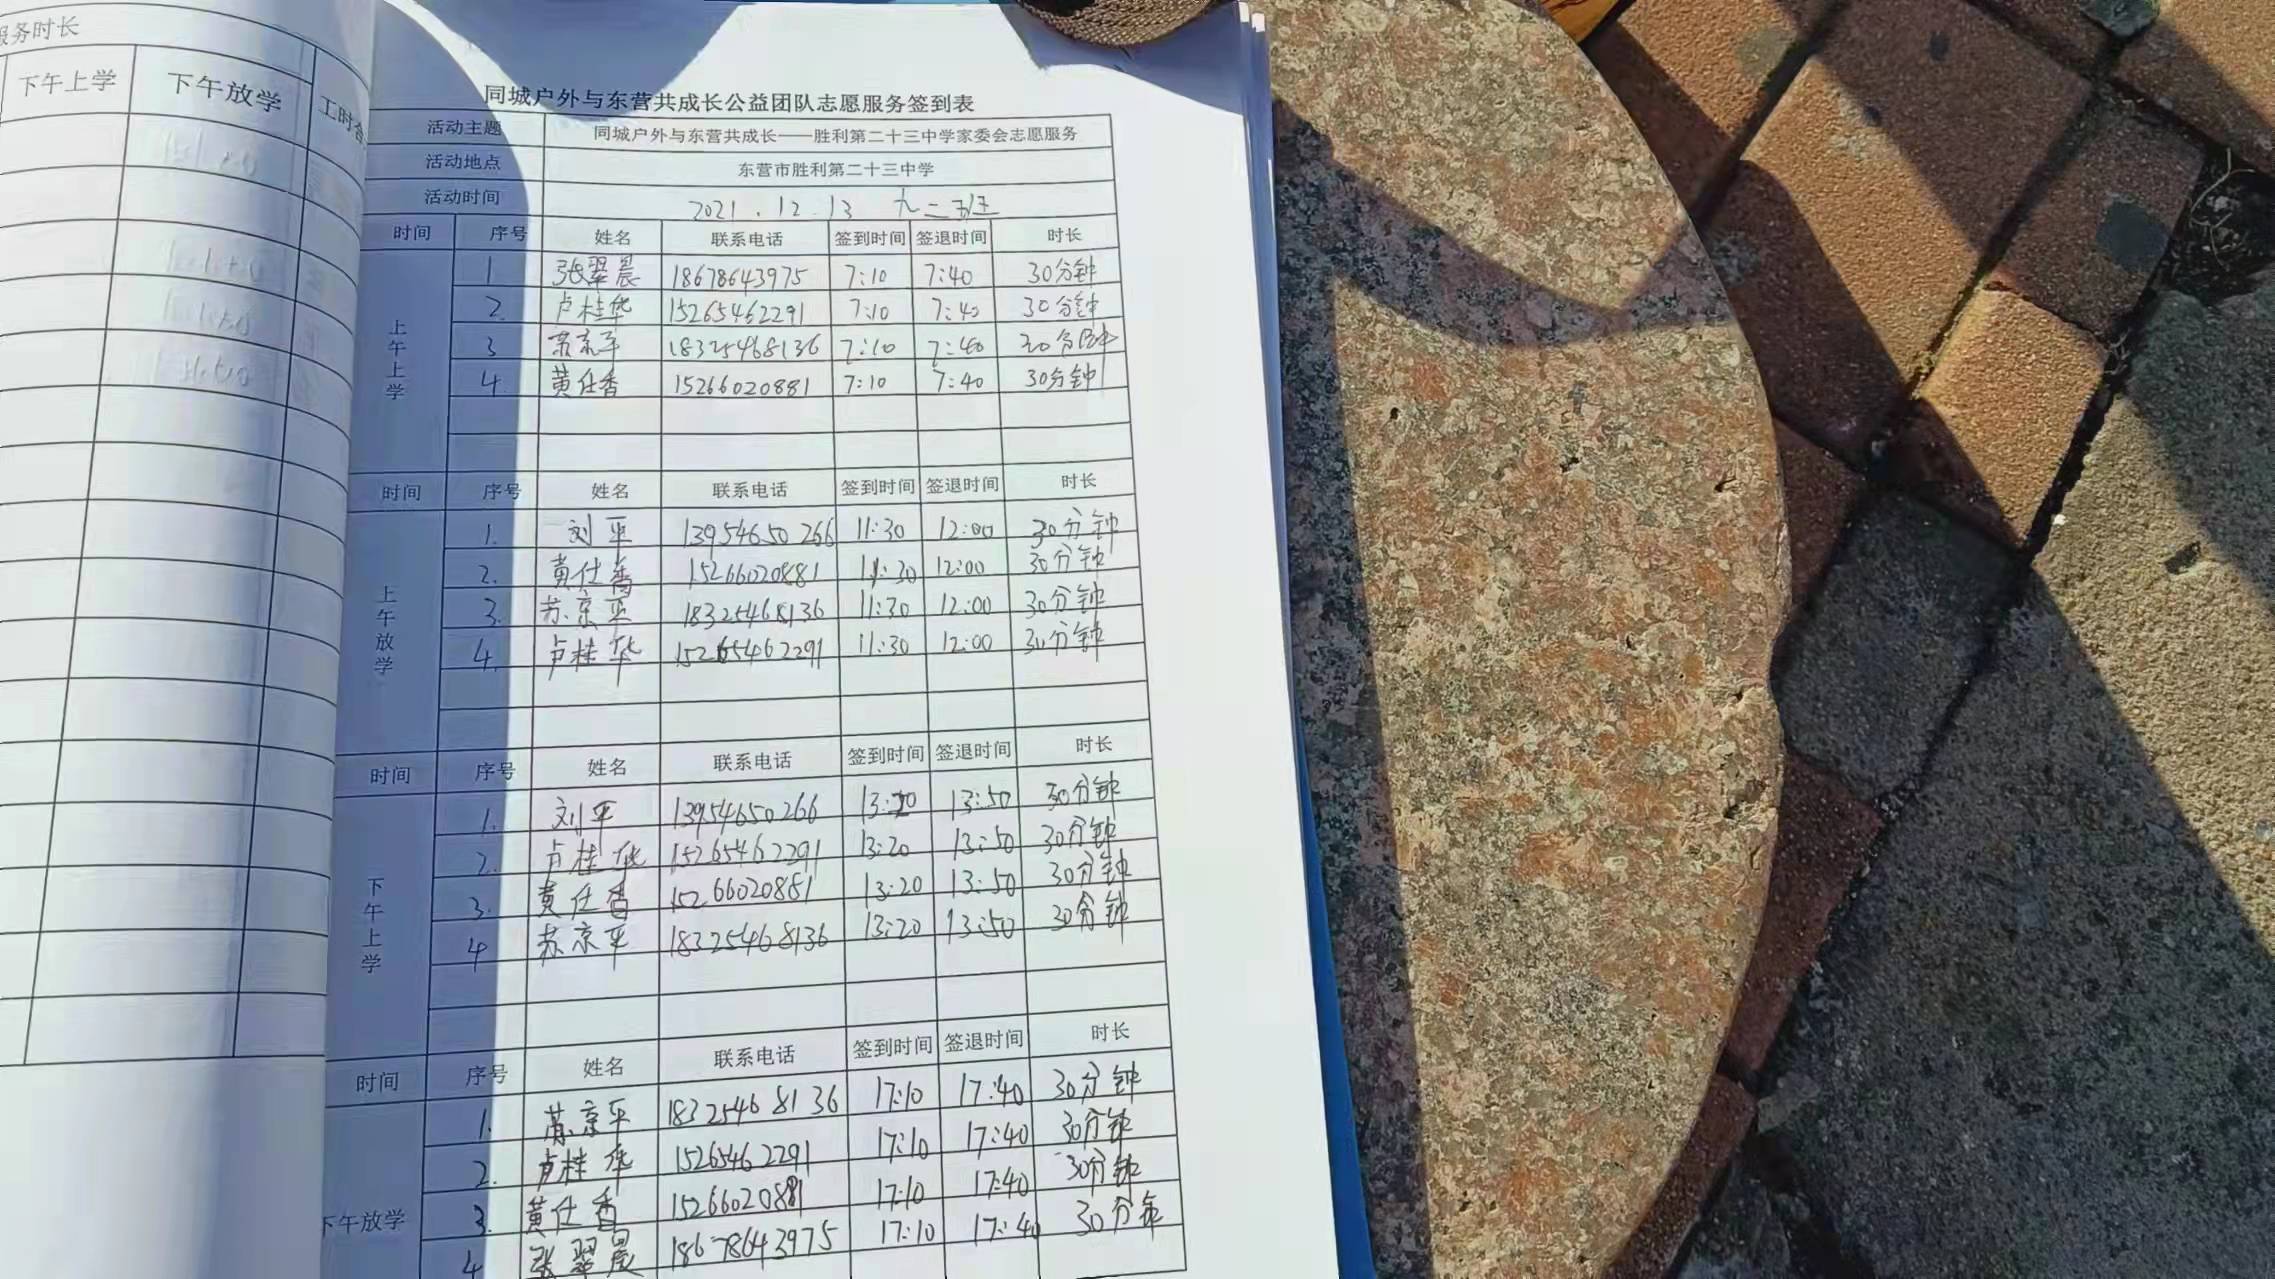 服务时长
下午上学 下午放学 工时合
同城户外与东营共成长公益团队志愿服务签到表
活动主题 同城户外与东营共成长——胜利第二十三中学家委会志愿服务
活动地点 东营市胜利第二十三中学
活动时间 2021.12.13 九二班
时间 序号 姓名 联系电话 签到时间 签退时间 时长
上午上学
1 张翠晨 18678643975 7:10 7:40 30分钟
2. 卢桂华 15265462291 7:10 7:40 30分钟
3 苏京平 18325468136 7:10 7:40 30分钟
4. 黄仕香 15266020881 7:10 7:40 30分钟
时间 序号 姓名 联系电话 签到时间 签退时间 时长
上午放学
1. 刘平 13954650266 11:30 12:00 30分钟
2. 黄仕香 15266020881 11:30 12:00 30分钟
3. 苏京平 18325468136 11:30 12:00 30分钟
4. 卢桂华 15265462291 11:30 12:00 30分钟
时间 序号 姓名 联系电话 签到时间 签退时间 时长
下午上学
1. 刘平 13954650266 13:20 13:50 30分钟
2. 卢桂华 15265462291 13:20 13:50 30分钟
3. 黄仕香 15266020881 13:20 13:50 30分钟
4 苏京平 18325468136 13:20 13:50 30分钟
时间 序号 姓名 联系电话 签到时间 签退时间 时长
下午放学
1. 苏京平 18325468136 17:10 17:40 30分钟
2. 卢桂华 15265462291 17:10 17:40 30分钟
3. 黄仕香 15266020881 17:10 17:40 30分钟
4 张翠晨 18678643975 17:10 17:40 30分钟